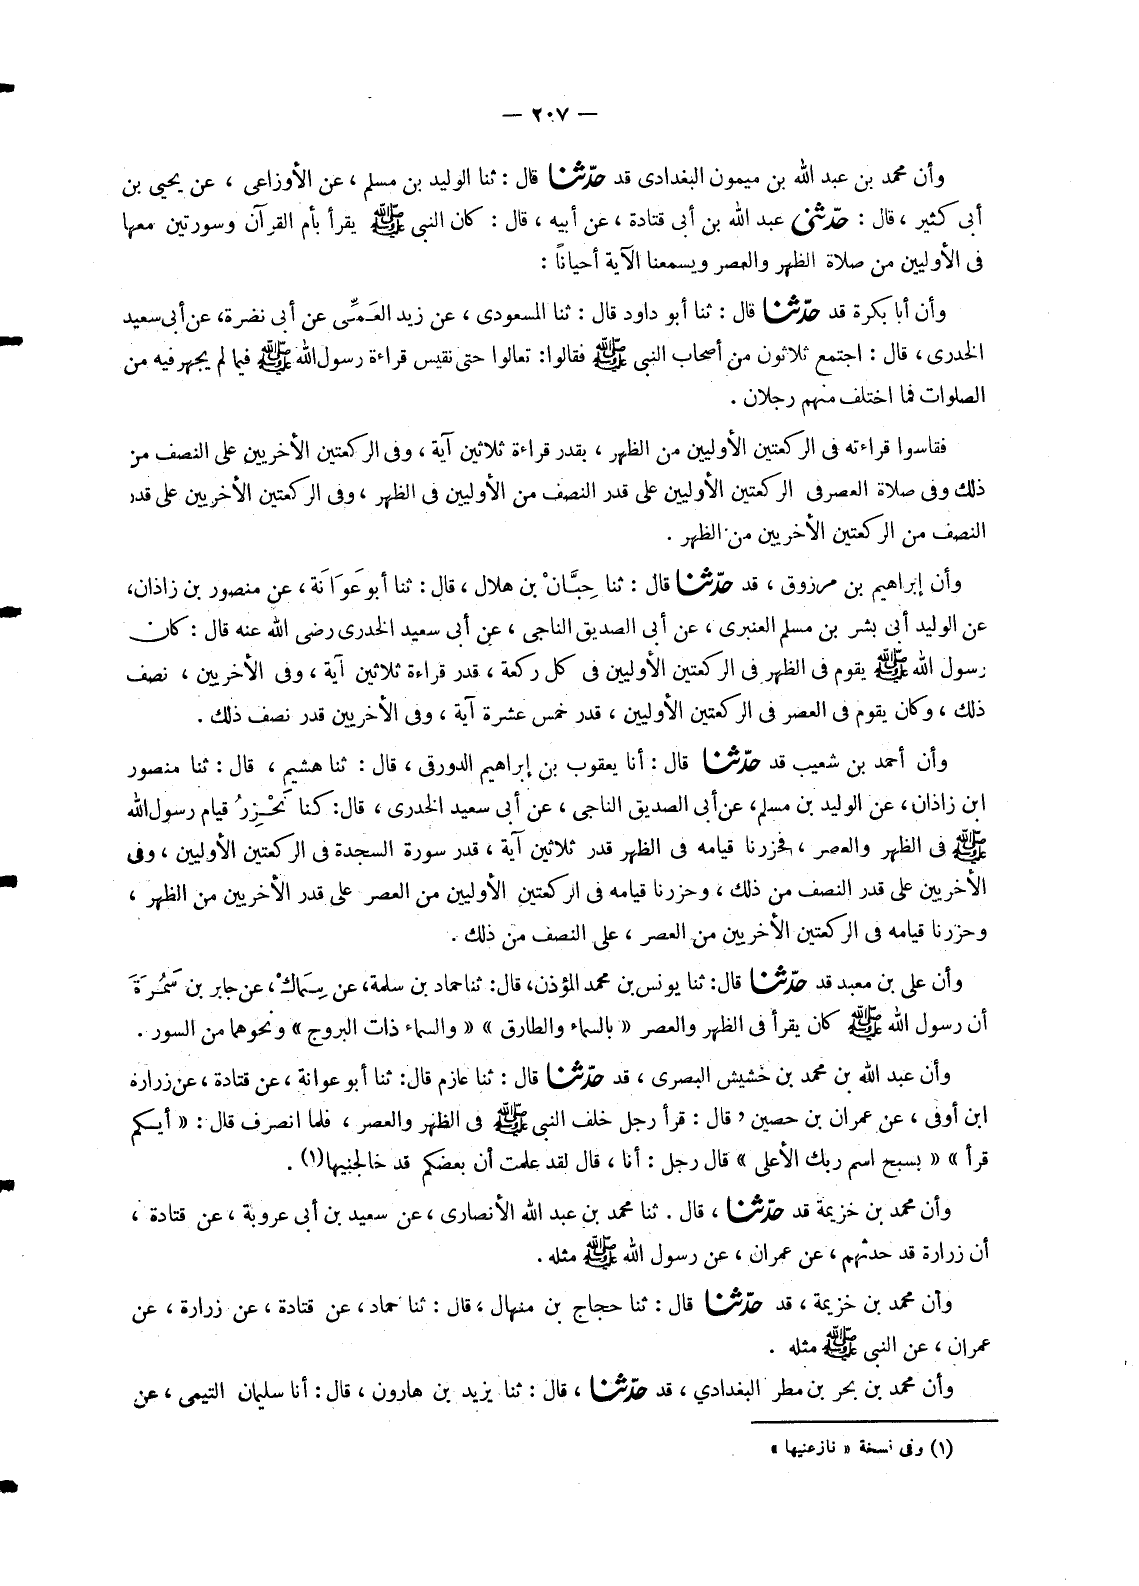 — ٢٠٧ —
وأن محمد بن عبد الله بن ميمون البغدادى قد حدّثنا قال : ثنا الوليد بن مسلم ، عن الأوزاعى ، عن يحيى بن
أبى كثير ، قال : حدّثنى عبد الله بن أبى قتادة ، عن أبيه ، قال : كان النبى ﷺ يقرأ بأم القرآن وسورتين معها
فى الأوليين من صلاة الظهر والعصر ويسمعنا الآية أحياناً :
وأن أبا بكرة قد حدّثنا قال : ثنا أبو داود قال : ثنا المسعودى ، عن زيد العَمِّى عن أبى نضرة، عن أبى سعيد
الخدرى ، قال : اجتمع ثلاثون من أصحاب النبى ﷺ فقالوا: تعالوا حتى نقيس قراءة رسول الله ﷺ فيما لم يجهر فيه من
الصلوات فما اختلف منهم رجلان .
فقاسوا قراءته فى الركعتين الأوليين من الظهر ، بقدر قراءة ثلاثين آية ، وفى الركعتين الأخريين على النصف من
ذلك وفى صلاة العصر فى الركعتين الأوليين على قدر النصف من الأوليين فى الظهر ، وفى الركعتين الأخريين على قدر
النصف من الركعتين الأخريين من الظهر .
وأن إبراهيم بن مرزوق ، قد حدّثنا قال : ثنا حِبَّانْ بن هلال ، قال : ثنا أبو عَوَانَة ، عن منصور بن زاذان،
عن الوليد أبى بشر بن مسلم العنبرى ، عن أبى الصديق الناجى ، عن أبى سعيد الخدرى رضى الله عنه قال : كان
رسول الله ﷺ يقوم فى الظهر فى الركعتين الأوليين فى كل ركعة ، قدر قراءة ثلاثين آية ، وفى الأخريين ، نصف
ذلك ، وكان يقوم فى العصر فى الركعتين الأوليين ، قدر خمس عشرة آية ، وفى الأخريين قدر نصف ذلك .
وأن أحمد بن شعيب قد حدّثنا قال : أنا يعقوب بن إبراهيم الدورقى ، قال : ثنا هشيم ، قال : ثنا منصور
ابن زاذان ، عن الوليد بن مسلم، عن أبى الصديق الناجى ، عن أبى سعيد الخدرى ، قال: كنا نَحْزِرُ قيام رسول الله
ﷺ فى الظهر والعصر ، فحزرنا قيامه فى الظهر قدر ثلاثين آية ، قدر سورة السجدة فى الركعتين الأوليين ، وفى
الأخريين على قدر النصف من ذلك ، وحزرنا قيامه فى الركعتين الأوليين من العصر على قدر الأخريين من الظهر ،
وحزرنا قيامه فى الركعتين الأخريين من العصر ، على النصف من ذلك .
وأن على بن معبد قد حدّثنا قال: ثنا يونس بن محمد المؤذن، قال: ثنا حماد بن سلمة، عن سِمَاكْ، عن جابر بن سَمُرَةَ
أن رسول الله ﷺ كان يقرأ فى الظهر والعصر « بالسماء والطارق » « والسماء ذات البروج » ونحوهما من السور .
وأن عبد الله بن محمد بن خشيش البصرى ، قد حدّثنا قال : ثنا عازم قال: ثنا أبو عوانة ، عن قتادة ، عن زرارة
ابن أوفى ، عن عمران بن حصين ، قال : قرأ رجل خلف النبى ﷺ فى الظهر والعصر ، فلما انصرف قال : « أيكم
قرأ » « بسبح اسم ربك الأعلى » قال رجل : أنا ، قال لقد علمت أن بعضكم قد خالجنيها(١) .
وأن محمد بن خزيمة قد حدّثنا ، قال . ثنا محمد بن عبد الله الأنصارى ، عن سعيد بن أبى عروبة ، عن قتادة ،
أن زرارة قد حدثهم ، عن عمران ، عن رسول الله ﷺ مثله .
وأن محمد بن خزيمة ، قد حدّثنا قال : ثنا حجاج بن منهال ، قال : ثنا حماد ، عن قتادة ، عن زرارة ، عن
عمران ، عن النبى ﷺ مثله .
وأن محمد بن بحر بن مطر البغدادي ، قد حدّثنا ، قال : ثنا يزيد بن هارون ، قال : أنا سليمان التيمى ، عن
(١) وفى نسخة « نازعنيها »